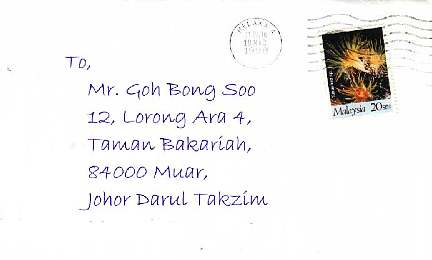 MELAKA
To,
Mr. Goh Bong Soo
12, Lorong Ara 4,
Taman Bakariah,
84000 Muar,
Johor Darul Takzim
Malaysia 20sen